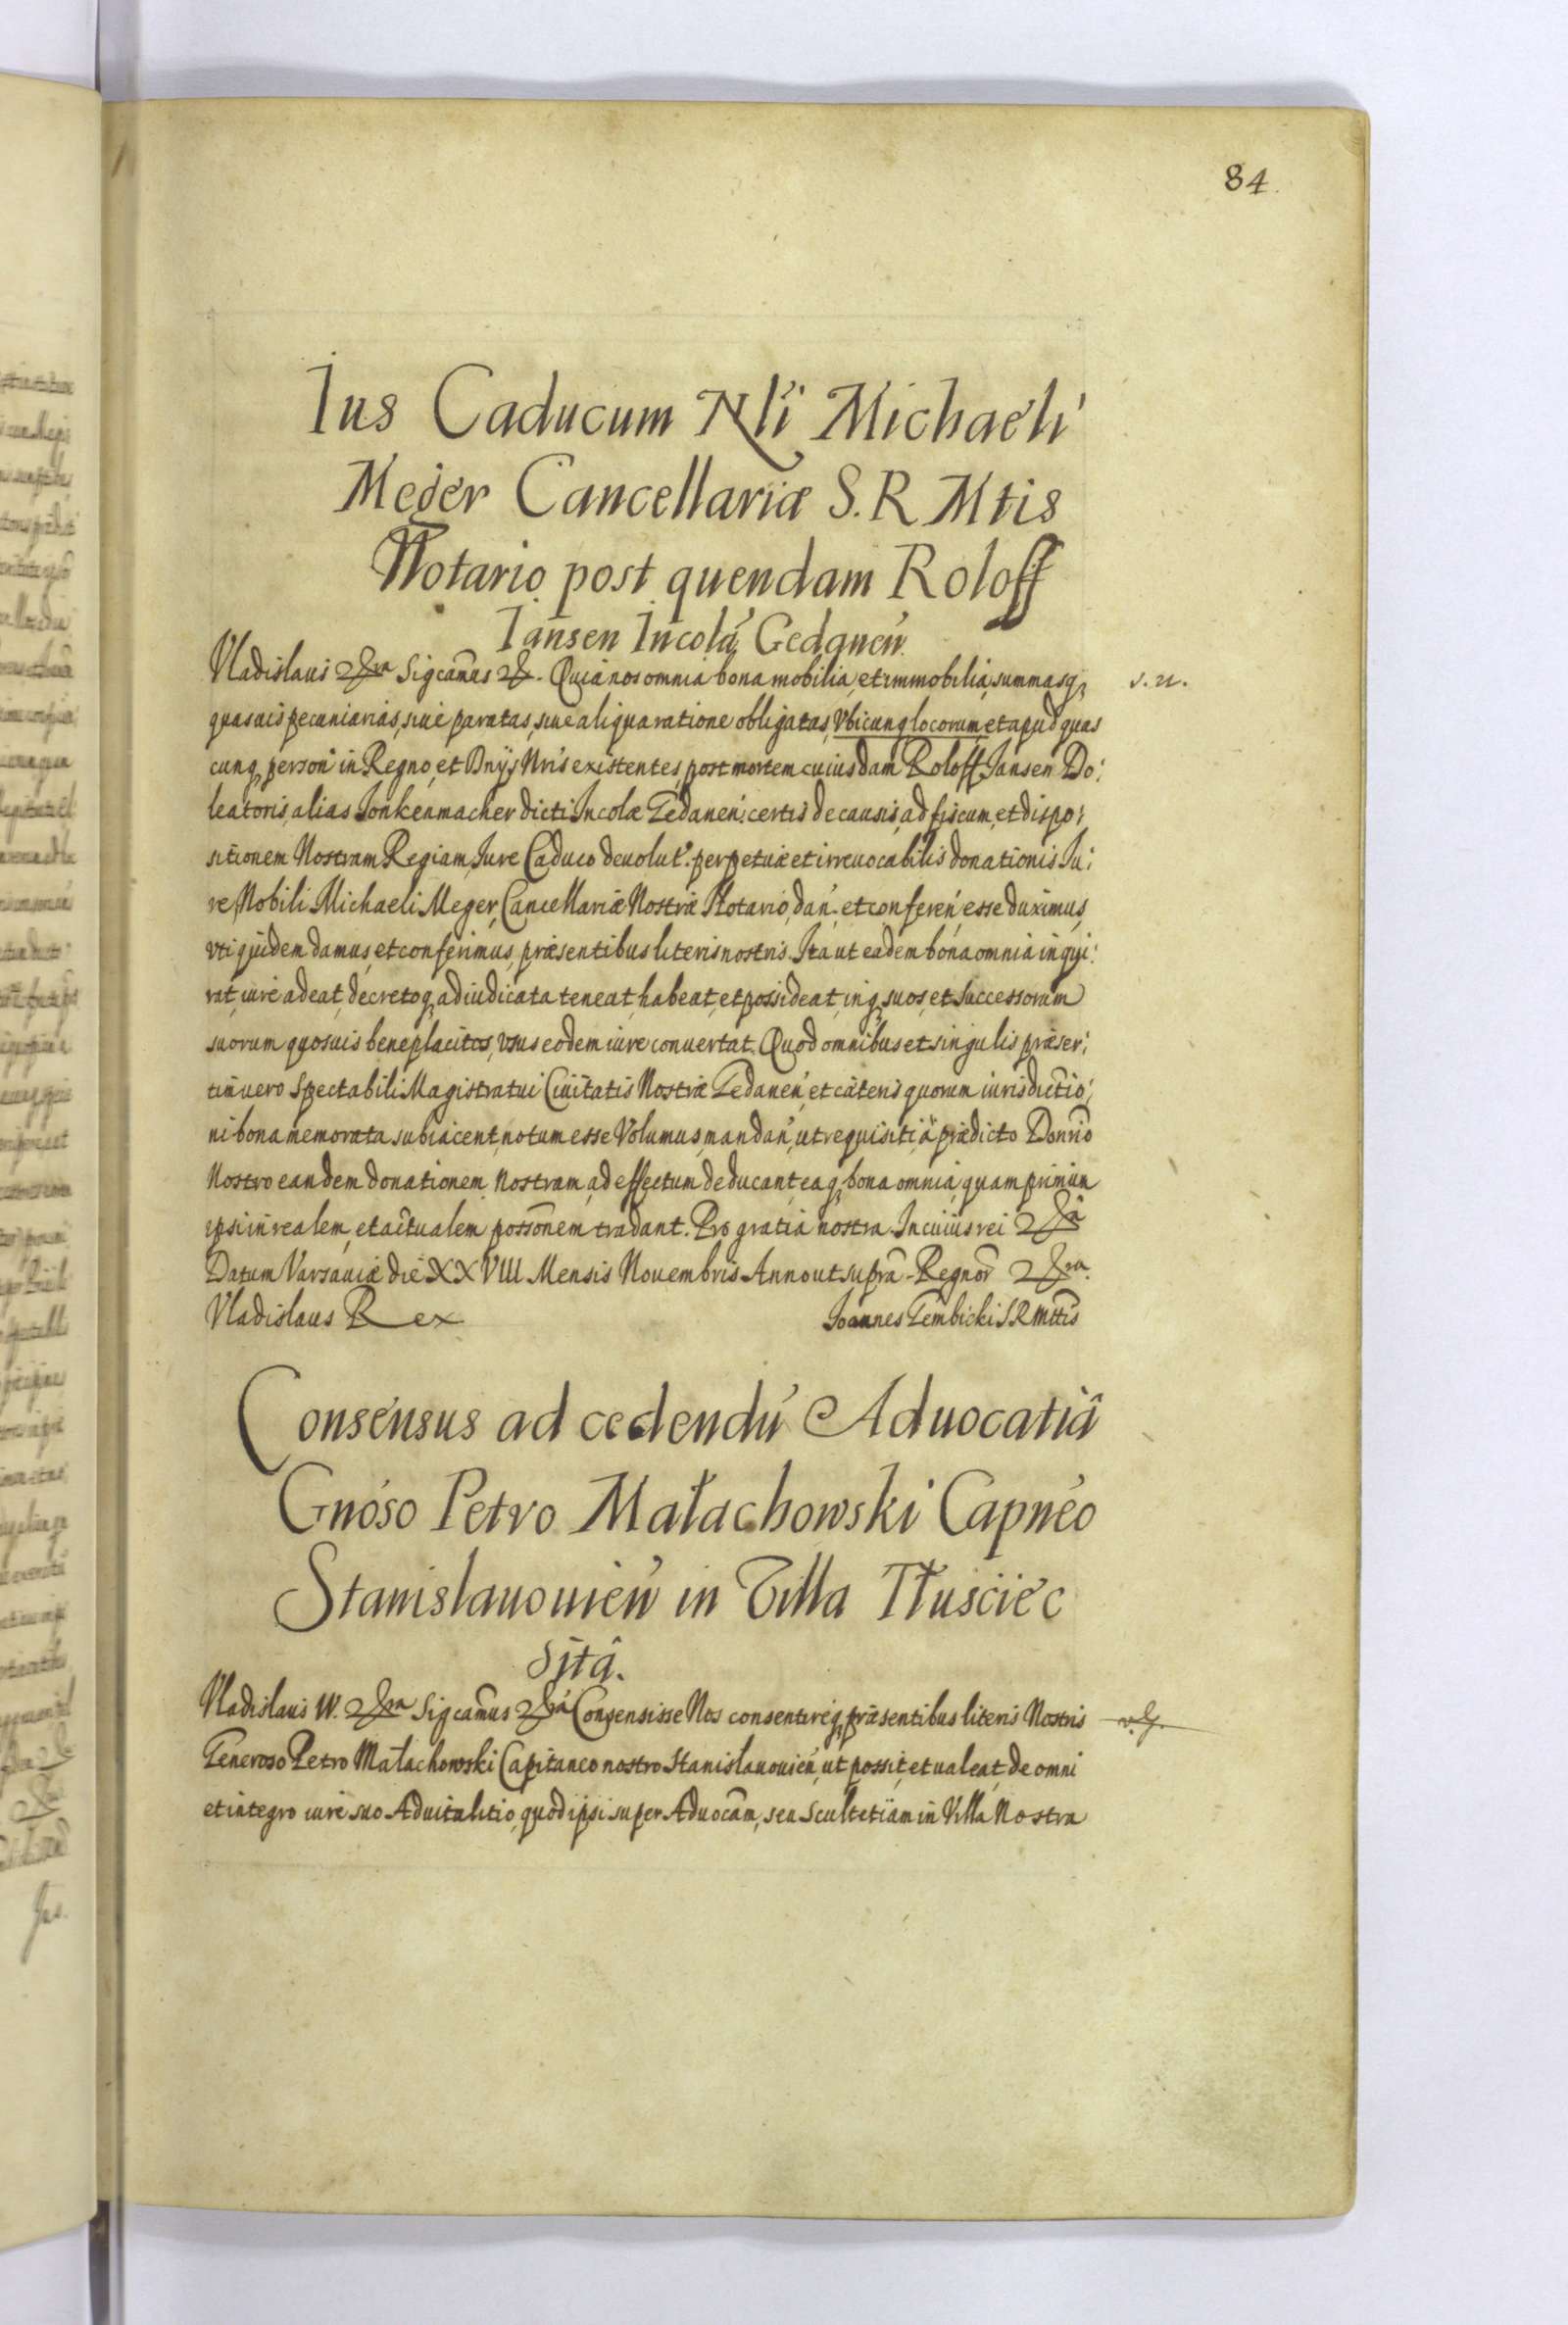 84.
Ius Caducum Nli Michaeli
Meger Cancellariæ S. R Mtis
Notario post quendam Roloff
Iansen Incolá Gedanen̄.
Vladislaus Sigcamus Quia nos omnia bona mobilia, et immobilia, summasq,
quasuis pecuniarias, siue paratas, siue aliqua ratione obligatas, Vbicunq locorum, et apud quas
cunq, person in Regno, et Dnijs Nris existentes, post mortem cuiusdam Roloff Jansen Do:
leatoris, alias Jonkenmacher dicti Incolæ Gedanen: certis de causis, ad fiscum, et dispo:
sitionem Nostram Regiam, Jure Caduco deuolut. perpetuæ et irreuocabilis donationis Ju:
re, Nobili Michaeli Meger, Cancellariæ Nostræ Notario, dan: et conferen esse duximus,
vti quidem damus, et conferimus, præsentibus literis nostris. Ita ut eadem bona omnia inqui:
rat, iure adeat, decretoq, adiudicata teneat, habeat, et possideat, inq, suos, et successorum
suorum quosuis beneplacitos, vsus eodem iure conuertat. Quod omnibus et singulis præser:
tim vero Spectabili Magistratui Ciuitatis Nostræ Gedanen, et cæteris quorum iurisdictio:
ni bona memorata subiacent, notum esse Volumus, mandan, ut requisiti, a prædicto Donrio
Nostro eandem donationem nostram, ad effectum deducant, eaq, bona omnia, quam primum
ipsi in realem, et actualem possonem tradant. Pro gratia nostra. In cuius rei
Datum Varsauiæ die XXVIII Mensis Nouembris Anno ut supra. Regnor
Vladislaus Rex Joannes Gembicki S R Mttis
s. n.
Consensus ad cedendū Aduocatiâ
Gnoso Petro Małachowski Capneo
Stanislauouien̄ in Villa Tłusciec
Sitâ.
Vladislaus IV. Sigcamus Consensisse Nos consentireq, præsentibus literis Nostris
Generoso Petro Małachowski Capitaneo nostro Stanislauouien, ut possit, et ualeat, de omni
et integro iure suo Aduitalitio, quod ipsi super Aduocam, seu Scultetiam in Villa Nostra